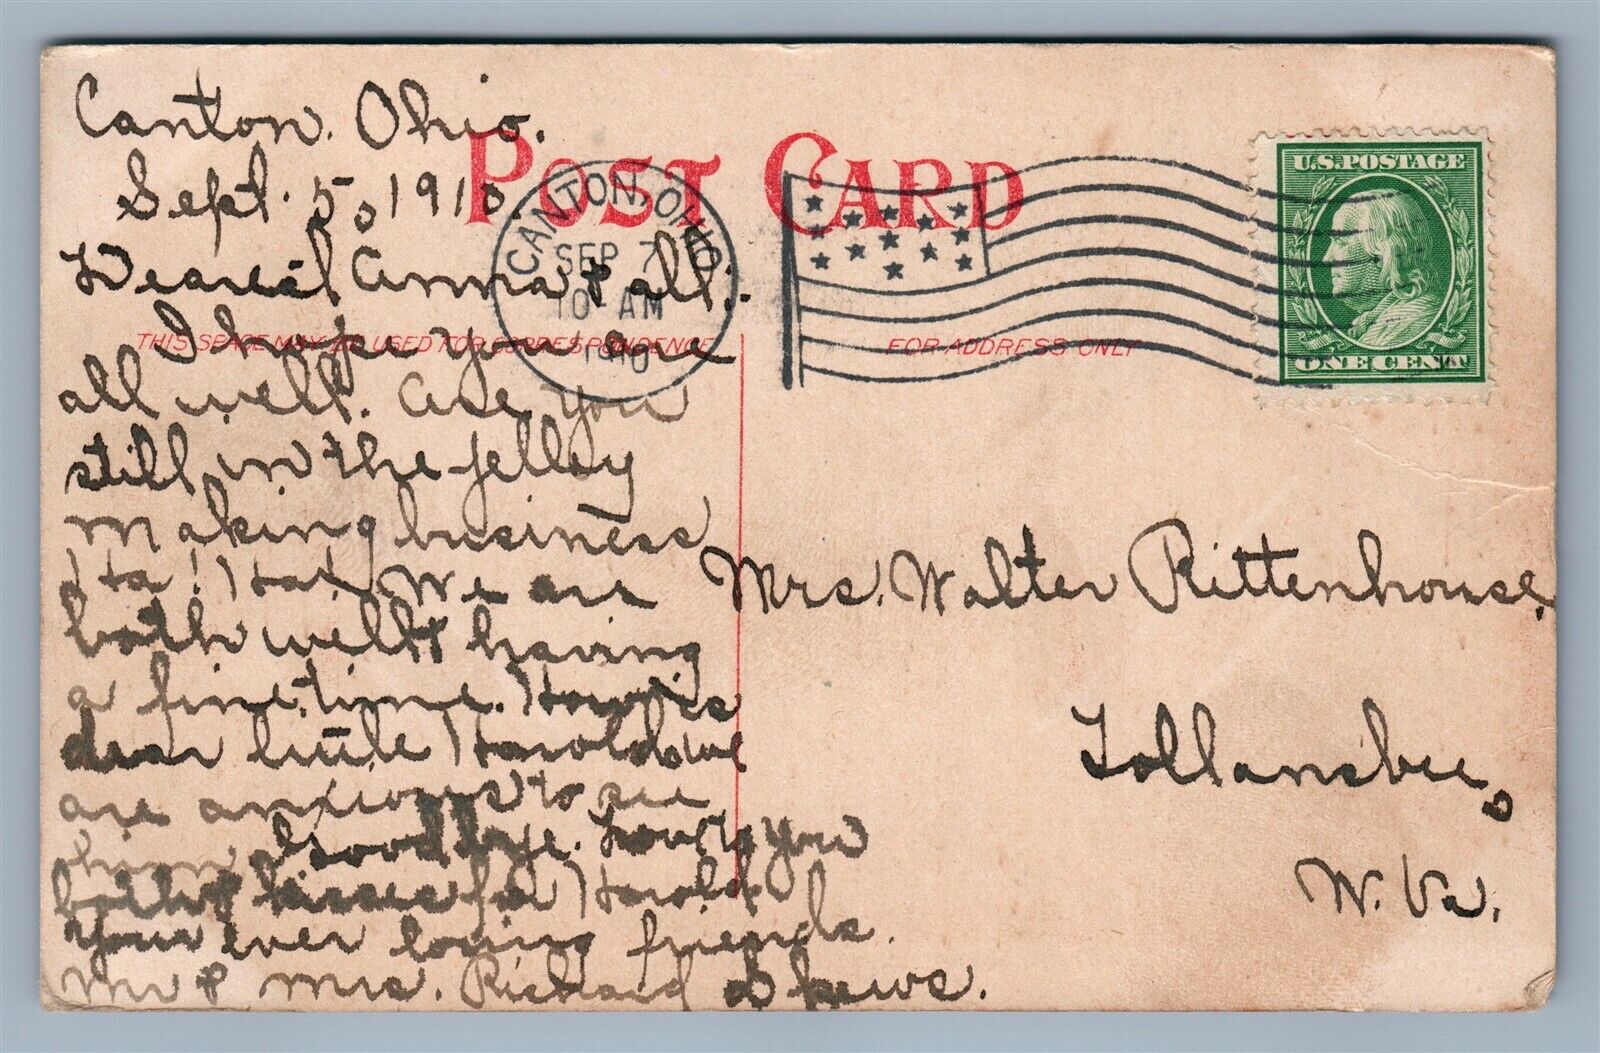 Canton. Ohio.
Sept. 5, 1910.
POST CARD
CANTON, OHIO
SEP 7
10-AM
1910
U.S. POSTAGE
ONE CENT
Dearest Anna & all:-
THIS SPACE MAY BE USED FOR CORRESPONDENCE
FOR ADDRESS ONLY
I hope you are
all well. Are you
still in the jelley
making business
Ha! Ha! We are
both well & having
a fine time. How is
dear little Harold we
are anxious to see
him Goodbye. Love to you
both & kisses for Harold.
Your ever loving friends.
Mr & Mrs. Richard Skews.
Mrs. Walter Rittenhouse.
Follansbee,
W. Va.